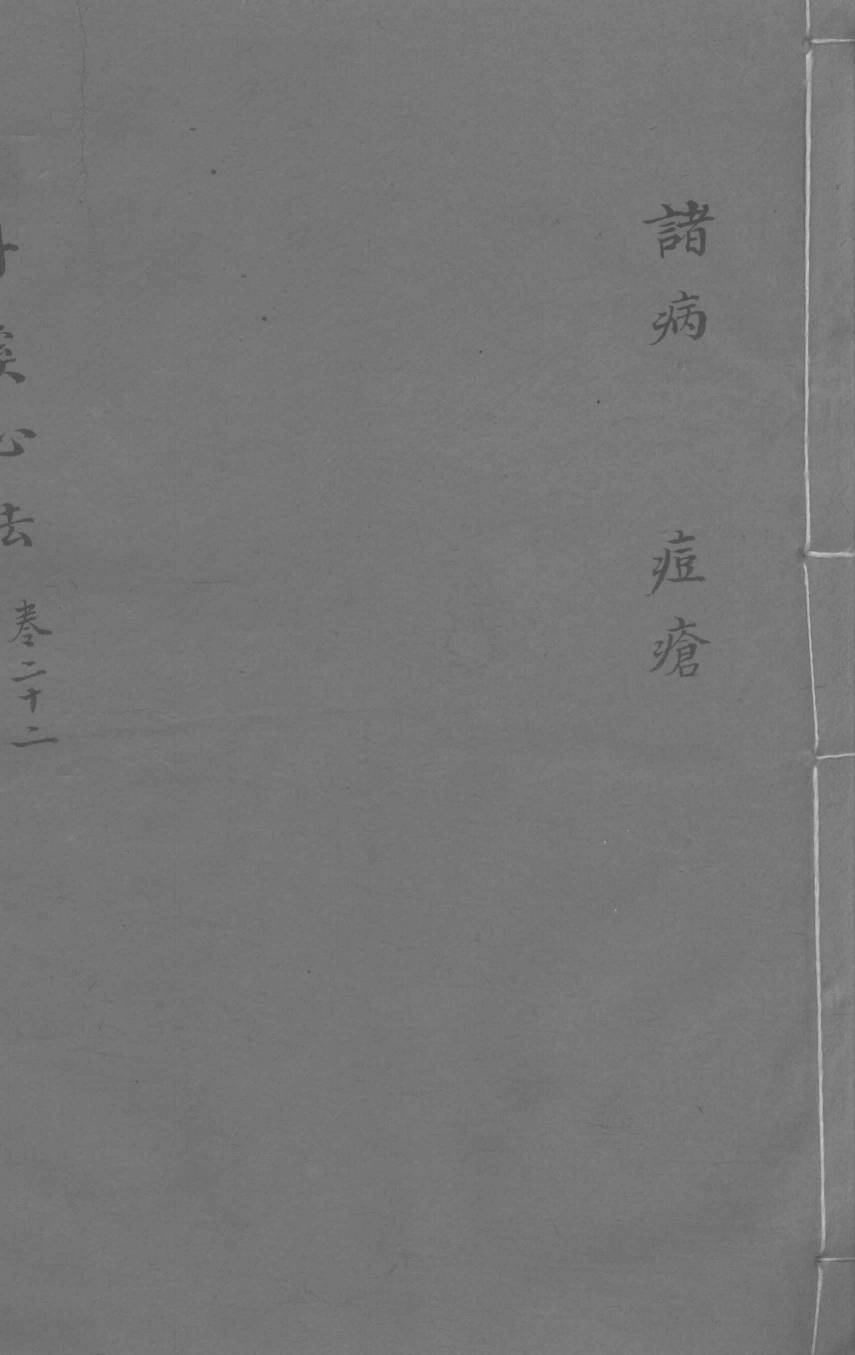 諸病　痘瘡
丹溪心法　卷二十二